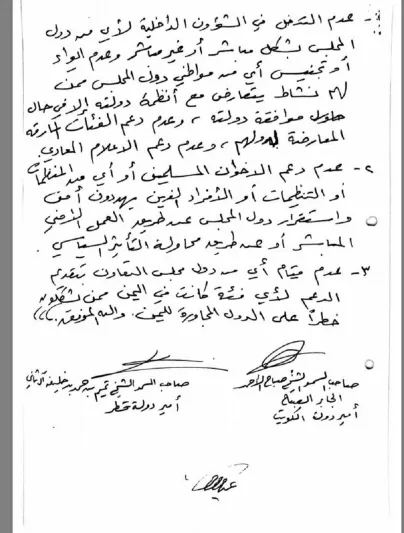 ١- عدم التدخل في الشؤون الداخلية لأي من دول
المجلس بشكل مباشر أو غير مباشر وعدم إيواء
أو تجنيس أي من مواطني دول المجلس ممن
لهم نشاط يتعارض مع أنظمة دولته إلا في حال
موافقة دولته ، وعدم دعم الفئات المارقة
المعارضة لدولهم ، وعدم دعم الإعلام المعادي
٢- عدم دعم الإخوان المسلمين أو أي من المنظمات
أو التنظيمات أو الأفراد الذين يهددون أمن
واستقرار دول المجلس عن طريق العمل الأمني
المباشر أو عن طريق محاولة التأثير السياسي .
٣- عدم قيام أي من دول مجلس التعاون بتقديم
الدعم لأي فئة كانت في اليمن ممن يشكلون
خطراً على الدول المجاورة لليمن . والله الموفق ،،،
صاحب السمو الشيخ صباح الأحمد
الجابر الصباح
أمير دولة الكويت
صاحب السمو الشيخ تميم بن حمد بن خليفة آل ثاني
أمير دولة قطر